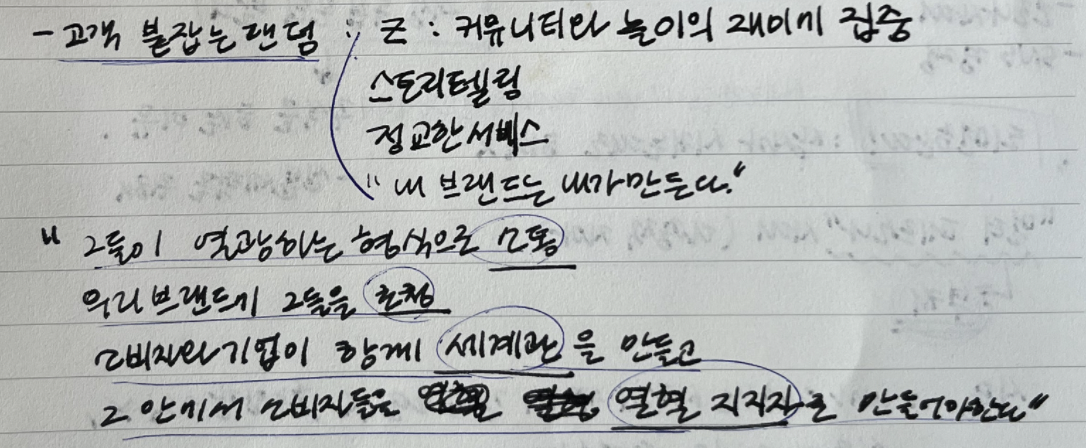 - 고객 붙잡는 랜덤 : 굿 : 커뮤니티와 놀이의 재미에 집중
스토리텔링
정교한 서비스
"내 브랜드는 내가 만든다."
"그들이 열광하는 형식으로 소통
우리 브랜드에 그들을 초청
소비자와 기업이 함께 세계관을 만들고
그 안에서 소비자들을 열혈 지지자로 만들어야한다"